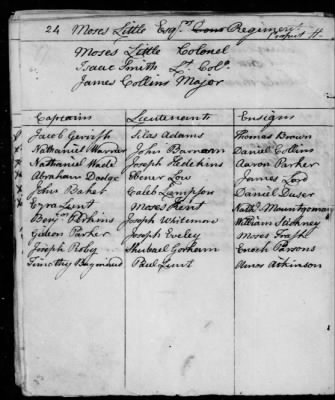 24 Moses Little Esqrs Regiment
Moses Little Colonel
Isaac Smith Lt. Colo.
James Collins Major
Captains Lieutenants Ensigns
Jacob Gerrish Silas Adams Thomas Brown
Nathaniel Warner John Burnam Daniel Collins
Nathaniel Wade Joseph Hodgkins Aaron Parker
Abraham Dodge Ebenr Low James Lord
John Baker Caleb Lampson Daniel
Ezra Lunt Moses Kent Nathl Mountgomery
Benjan Perkins Joseph Whitemore William Stickney
Gideon Parker Joseph Eveley Moses
Joseph Roby Shubael Gorham Enoch Parsons
Timothy Barnard Paul Lunt Amos Atkinson